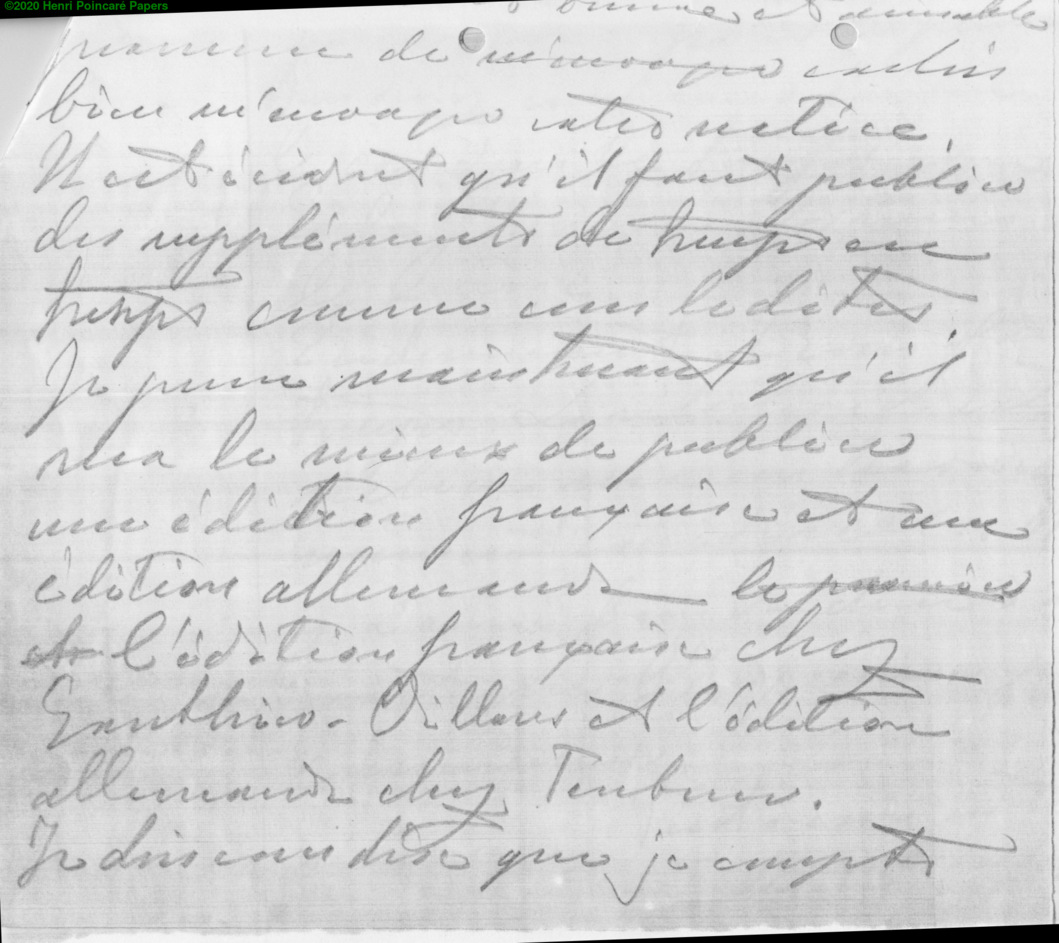 ©2020 Henri Poincaré Papers
bonne et aimable
promesse de m'envoyer
bien m'envoyer votre notice.
Il est évident qu'il faut publier
des suppléments de temps en
temps comme vous le dites.
Je pense maintenant qu'il
sera le mieux de publier
une édition française et une
édition allemande le première
et l'édition française chez
Gauthier-Villars et l'édition
allemande chez Teubner.
Je dois vous dire que je compte